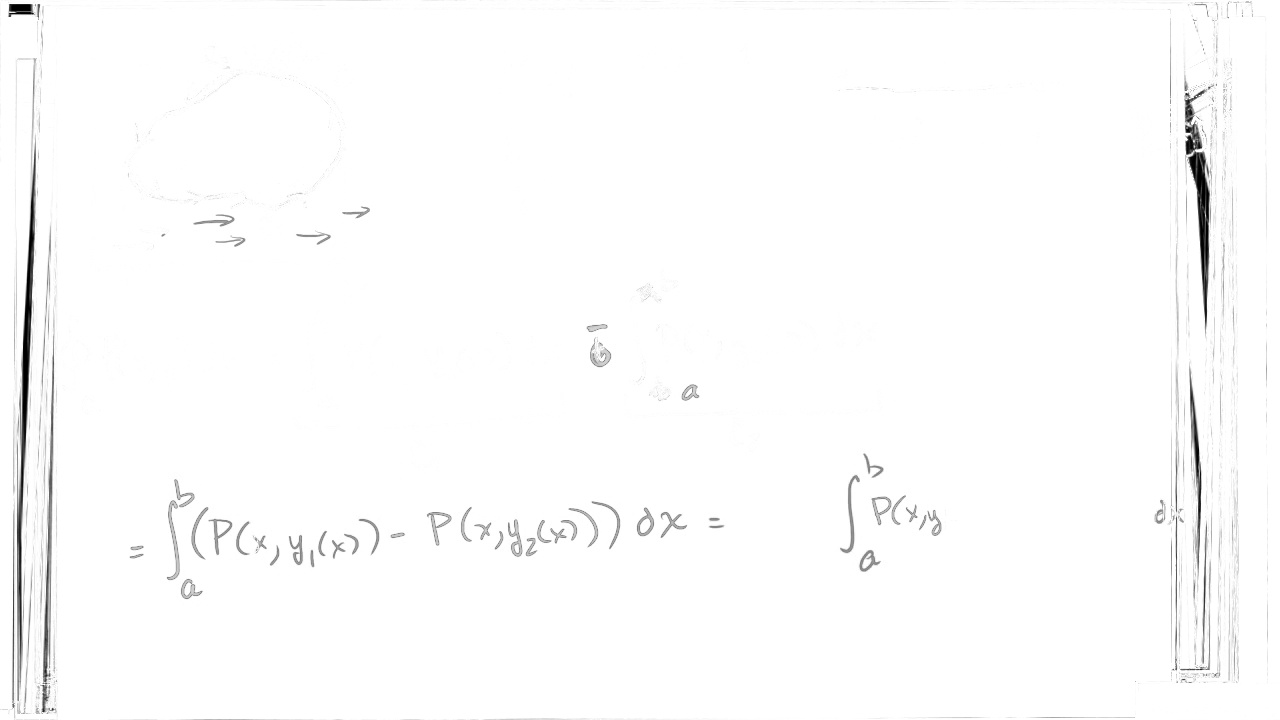 a
= ∫_a^b (P(x, y_1(x)) - P(x, y_2(x))) dx = ∫_a^b P(x, y dx